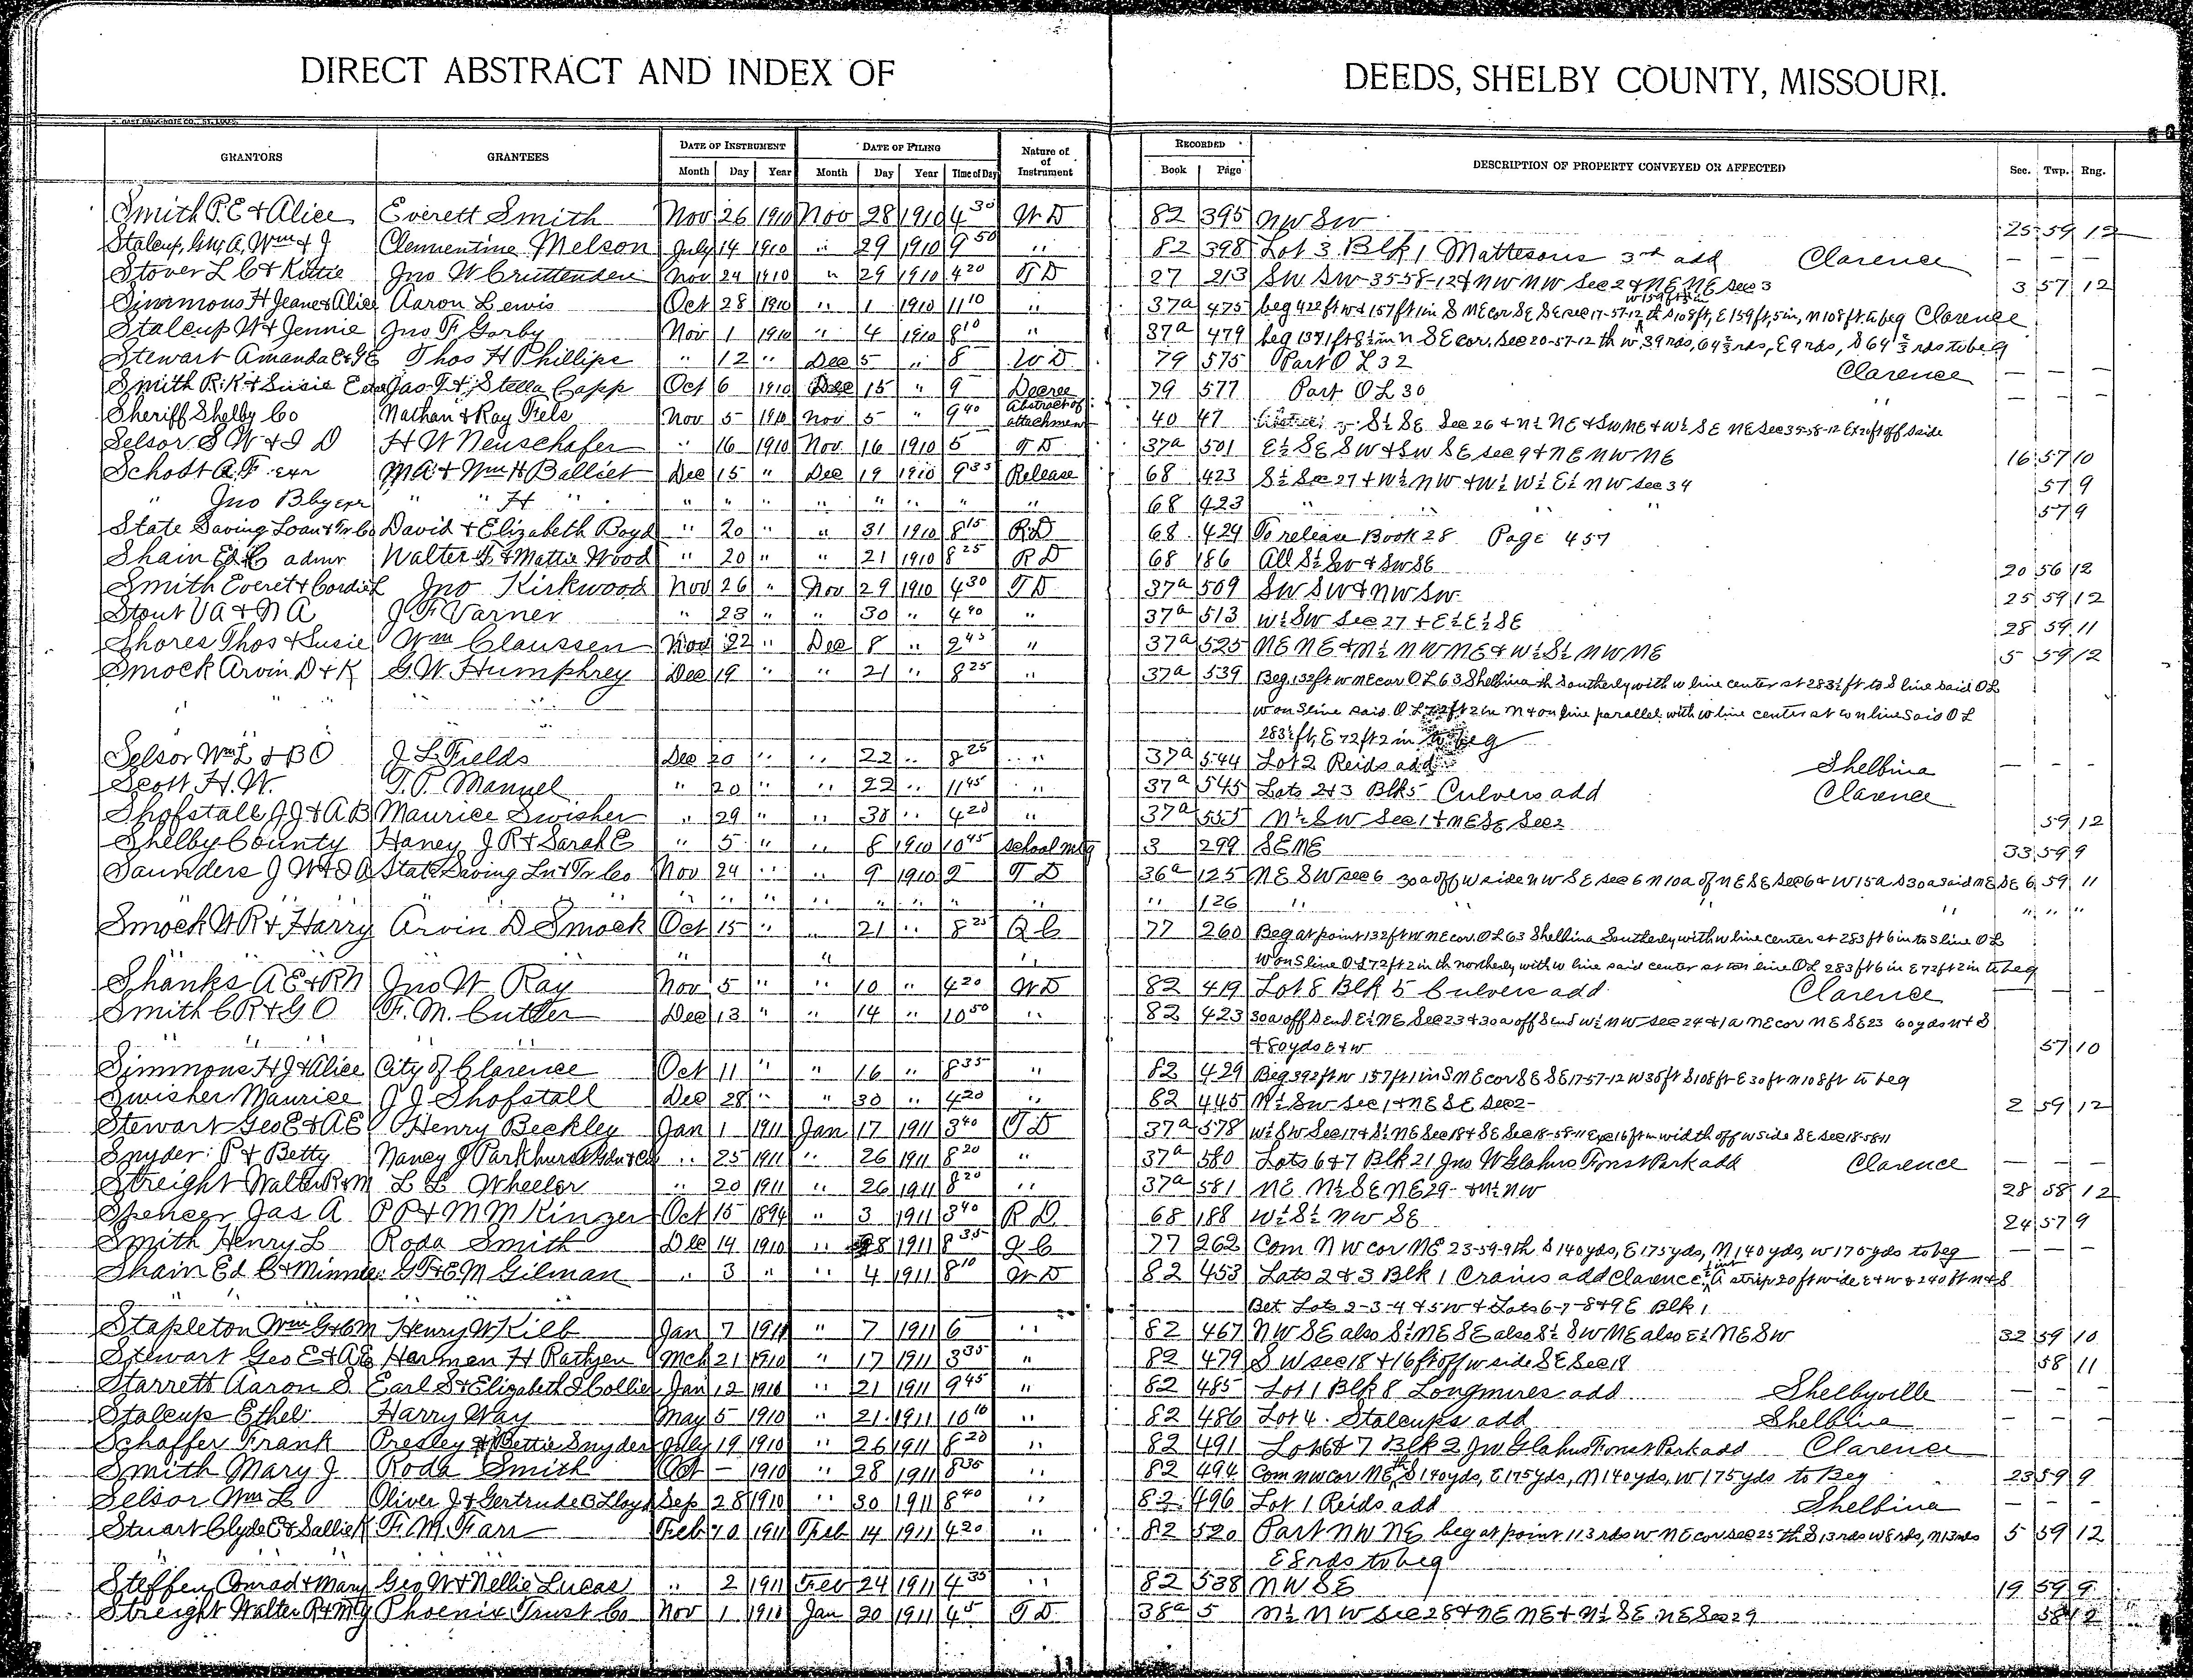 DIRECT ABSTRACT AND INDEX OF DEEDS, SHELBY COUNTY, MISSOURI.
GRANTORS GRANTEES DATE OF INSTRUMENT DATE OF FILING Nature of of Instrument RECORDED DESCRIPTION OF PROPERTY CONVEYED OR AFFECTED Sec. Twp. Rng.
Month Day Year Month Day Year Time of Day Book Page
Smith P.E & Alice Everett Smith Nov 26 1910 Nov 28 1910 4 30 W D 82 395 NW SW 25 59 12
Stalcup, Wm & J Clementine Melson July 14 1910 " 29 1910 9 50 " 82 398 Lot 3 Blk 1 Mattesons 3rd add Clarence — — —
Stover L C & Kittie Jno W Cruttenden Nov 24 1910 " 29 1910 4 20 T D 27 213 SW SW 35 58-12 & NW NW Sec 2 & NE NE Sec 3 3 57 12
Simmons H Jeane & Alice Aaron Lewis Oct 28 1910 " 1 1910 11 10 " 37a 475 beg 422 ft w & 157 ft 1 in S NE cor SE SE sec 17-57-12 th S 108 ft, E 159 ft, 5 in, N 108 ft to beg Clarence
Stalcup W & Jennie Jno F Gorby Nov 1 1910 " 4 1910 8 10 " 37a 479 beg 1371 ft 8½ in N SE cor. Sec 20-57-12 th w 39 rds, 64 ⅔ rds, E 9 rds, S 64 ⅔ rds to beg
Stewart Amanda E & G E Thos H Phillips " 12 " Dec 5 " 8 W D 79 575 Part O L 32 Clarence — — —
Smith R.K & Susie Jas T & Stella Capp Oct 6 1910 Dec 15 " 9 Decree 79 577 Part O L 30 " — — —
Sheriff Shelby Co Nathan & Ray Fiele Nov 5 1910 Nov 5 " 9 40 Abstract of attachment 40 47 S½ SE Sec 26 & N½ NE & SW NE & W½ SE NE Sec 35-58-12 Ex 20 ft off S side
Selsor S W & I D H W Neuschafer " 16 1910 Nov 16 1910 5 T D 37a 501 E½ SE SW & SW SE sec 9 & NE NW NE 16 57 10
Schott A.F. exr M A & Wm H Balliet Dec 15 " Dec 19 1910 9 35 Release 68 423 S½ Sec 27 & W½ NW & W½ W½ E½ NW Sec 34 57 9
" Jno B by exr " " H " " " " " " " " " 68 423 " " " " 57 9
State Saving Loan & Tr Co David & Elizabeth Boyd " 20 " " 31 1910 8 15 R D 68 424 To release Book 28 Page 457
Shain Ed C admr Walter F & Mattie Wood " 20 " " 21 1910 8 25 R D 68 186 All S½ SW & SW SE 20 56 12
Smith Everet & Cordie L Jno Kirkwood Nov 26 " Nov 29 1910 4 30 T D 37a 509 SW SW & NW SW 25 59 12
Stout V A & N A J F Varner " 23 " " 30 " 4 40 " 37a 513 W½ SW Sec 27 & E½ E½ SE 28 59 11
Shores Thos & Susie Wm Claussen Nov 22 " Dec 8 " 2 45 " 37a 525 NE NE & N½ NW NE & W½ S½ NW NE 5 59 12
Smock Arvin D & K G.W. Humphrey Dec 19 " " 21 " 8 25 " 37a 539 Beg. 132 ft w NE cor O L 63 Shelbina th Southerly with w line center st 283½ ft to S line said O L
" " " W on S line said O L 72 ft 2 in N & on line parallel with w line center st to N line Said O L
283½ ft, E 72 ft 2 in to beg
Selsor Wm L & B O J L Fields Dec 20 " " 22 " 8 25 " 37a 544 Lot 2 Reids add Shelbina — — —
Scott H.W. T.P. Manuel " 20 " " 22 " 11 45 " 37a 545 Lots 2 & 3 Blk 5 Culvers add Clarence
Shofstall J J & A B Maurice Swisher " 29 " " 30 " 4 20 " 37a 555 N½ SW Sec 1 & NE SE Sec 2 59 12
Shelby County Haney J R & Sarah E " 5 " " 6 1910 10 45 School mtg 3 299 SE NE 33 59 9
Saunders J W & D A State Saving Ln & Tr Co Nov 24 " " 9 1910 9 T D 36a 125 NE SW sec 6 30a off W side NW SE sec 6 N 10a of NE SE Sec 6 & W 15a S 30a said NE SE 6 59 11
" " " " " " " " " " 126 " " " " " "
Smock W R & Harry Arvin D Smock Oct 15 " " 21 " 8 25 Q C 77 260 Beg at point 132 ft W NE cor. O L 63 Shelbina Southerly with w line center st 283 ft 6 in to S line O L
" " " W on S line O L 72 ft 2 in th northerly with w line said center st to N line O L 283 ft 6 in E 72 ft 2 in to beg
Shanks A E & R N Jno W Ray Nov 5 " " 10 " 4 20 W D 82 419 Lot 8 Blk 5 Culvers add Clarence — — —
Smith C R & G O F.M. Cutler Dec 13 " " 14 " 10 50 " 82 423 30a off S end E½ NE Sec 23 & 30a off S end W½ NW Sec 24 & 1a NE cor NE SE 23 60 yds N & S
" " & 80 yds E & W 57 10
Simmons H J & Alice City of Clarence Oct 11 " " 16 " 8 35 " 82 429 Beg 392 ft w 157 ft 1 in S NE cor SE SE 17-57-12 W 30 ft S 108 ft E 30 ft N 108 ft to beg
Swisher Maurice J J Shofstall Dec 28 " " 30 " 4 20 " 82 445 N½ SW Sec 1 & NE SE Sec 2 2 59 12
Stewart Geo E & A E Henry Beckley Jan 1 1911 Jan 17 1911 3 40 T D 37a 578 W½ SW Sec 17 & S½ NE Sec 18 & SE Sec 18-58-11 Exc 16 ft in width off W side SE Sec 18-58-11
Snyder P & Betty Nancy J Parkhurst " 25 1911 " 26 1911 8 20 " 37a 580 Lots 6 & 7 Blk 21 Jno W Glahns Forest Park add Clarence — — —
Streight Walter R & M L L Wheeler " 20 1911 " 26 1911 8 20 " 37a 581 NE N½ SE NE 29 & N½ NW 28 58 12
Spencer Jas A P P & M M Kinzer Oct 15 1894 " 3 1911 3 40 R D 68 188 W½ S½ NW SE 24 57 9
Smith Henry L Roda Smith Dec 14 1910 " 28 1911 8 35 Q C 77 262 Com NW cor NE 23-59-9 th S 140 yds, E 175 yds, N 140 yds, W 175 yds to beg — — —
Shain Ed C & Minnie G F & E M Gilman " 3 " " 4 1911 8 10 W D 82 453 Lots 2 & 3 Blk 1 Crains add Clarence ½ int A strip 20 ft wide E & W & 240 ft N & S
" " " Bet Lots 2-3-4 & 5 W & Lots 6-7-8 & 9 E Blk 1
Stapleton Wm G & C M Henry W Kilb Jan 7 1911 " 7 1911 6 " 82 467 NW SE also S½ NE SE also S½ SW NE also E½ NE SW 32 59 10
Stewart Geo E & A E Harmen H Rathjen Mch 21 1910 " 17 1911 3 35 " 82 479 SW sec 18 & 16 ft off w side SE Sec 18 58 11
Starrett Aaron S. Earl S & Elizabeth S Collier Jan 12 1910 " 21 1911 9 45 " 82 485 Lot 1 Blk 8 Longmires add Shelbyville — — —
Stalcup Ethel Harry Way May 5 1910 " 21 1911 10 10 " 82 486 Lot 4 Stalcups add Shelbina — — —
Schaffer Frank Presley & Bettie Snyder July 19 1910 " 26 1911 8 20 " 82 491 Lot 6 & 7 Blk 2 Jno Glahns Forest Park add Clarence
Smith Mary J Roda Smith Oct — 1910 " 28 1911 8 35 " 82 494 Com NW cor NE th S 140 yds, E 175 yds, N 140 yds, W 175 yds to Beg 23 59 9
Selsor Wm L Oliver J & Gertrude B Lloyd Sep 28 1910 " 30 1911 8 40 " 82 496 Lot 1 Reids add Shelbina — — —
Stuart Clyde E & Sallie K F.M. Farr Feb 10 1911 Feb 14 1911 4 20 " 82 520 Part NW NE beg at point 113 rds w NE cor sec 25 th S 13 rds w 8 rds, N 13 rds 5 59 12
" " " E 8 rds to beg
Steffen, Conrad & Mary Geo W & Nellie Lucas " 2 1911 Feb 24 1911 4 35 " 82 538 NW SE 19 59 9
Streight Walter R & M G Phoenix Trust Co Nov 1 1910 Jan 20 1911 4 5 T D 38a 5 N½ NW Sec 28 & NE NE & N½ SE NE Sec 29 58 12